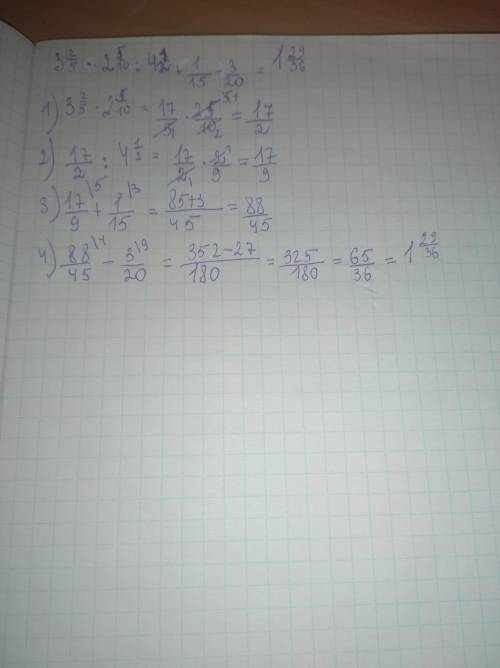 3 2/5 · 2 5/10 : 4 1/2 + 1/15 - 3/20 = 1 29/36
1) 3 2/5 · 2 5/10 = 17/5 · 25/10 = 17/2
2) 17/2 : 4 1/2 = 17/2 · 2/9 = 17/9
3) 17/9 + 1/15 = 85+3/45 = 88/45
4) 88/45 - 3/20 = 352-27/180 = 325/180 = 65/36 = 1 29/36